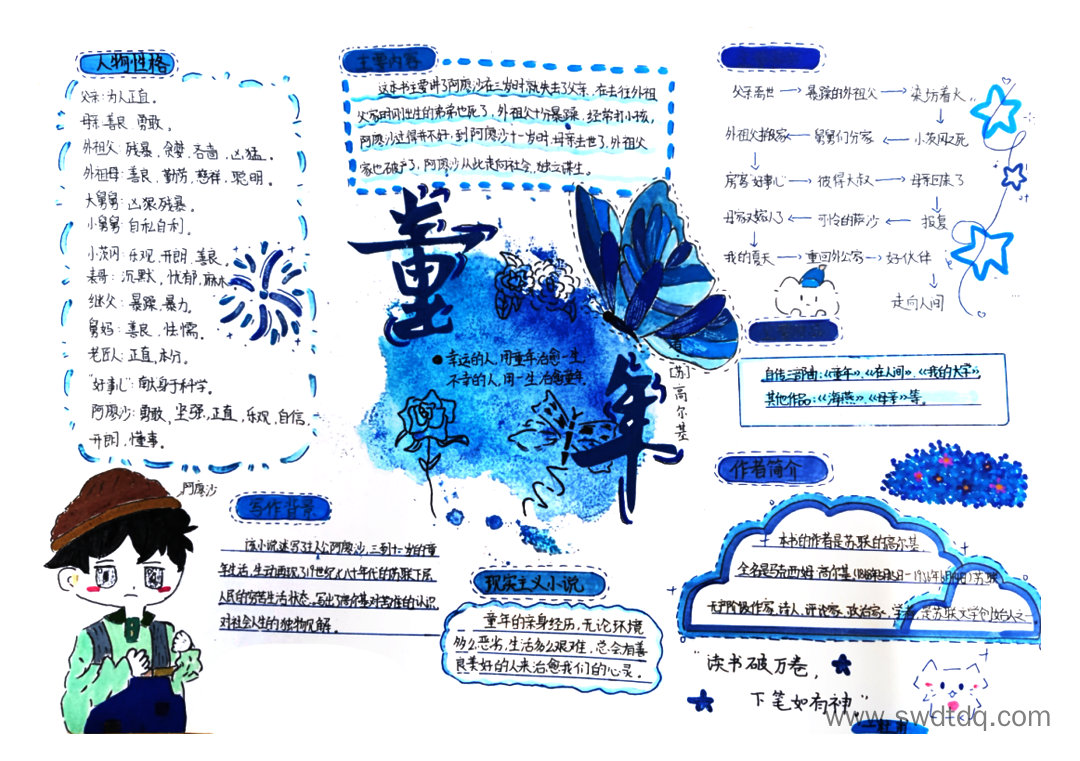 人物性格
父亲:为人正直。
母亲:善良、勇敢。
外祖父:残暴、贪婪、吝啬、凶猛。
外祖母:善良、勤劳、慈祥、聪明。
大舅舅:凶狠残暴。
小舅舅:自私自利。
小茨冈:乐观、开朗、善良。
表哥:沉默、忧郁、麻木
继父:暴躁、暴力。
舅妈:善良、怯懦。
老匠人:正直、本分。
"好事儿":献身于科学。
阿廖沙:勇敢、坚强、正直、乐观、自信、
开朗、懂事。
阿廖沙
主要内容
这本书主要讲了阿廖沙在三岁时就失去了父亲,在去往外祖
父家时刚出生的弟弟也死了,外祖父十分暴躁,经常打小孩,
阿廖沙过得并不好,到阿廖沙十一岁时,母亲去世了,外祖父
家也破产了,阿廖沙从此走向社会,独立谋生。
童年
幸运的人,用童年治愈一生,
不幸的人,用一生治愈童年。
著
[苏]高尔基
写作背景
该小说述写了主人公阿廖沙,三到十一岁的童
年生活,生动再现了19世纪七八十年代的苏联下层
人民的劳苦生活状态,写出了高尔基对苦难的认识
对社会人生的独特见解。
现实主义小说
童年的亲身经历,无论环境
多么恶劣,生活多么艰难,总会有善
良美好的人来治愈我们的心灵。
父亲离世→暴躁的外祖父→染坊着火
外祖父搬家←舅舅们分家←小茨冈之死
房客"好事儿"→彼得大叔→母亲回来了
母亲又嫁人了←可怜的萨沙←报复
我的夏天→重回外公家→好伙伴
走向人间
自传三部曲:《童年》、《在人间》、《我的大学》,
其他作品:《海燕》、《母亲》等。
作者简介
本书的作者是苏联的高尔基
全名是马克西姆·高尔基
苏联
无产阶级作家、诗人、评论家、政治家、学者,是苏联文学创始人之一
"读书破万卷,
下笔如有神。"
www.swdtdq.com